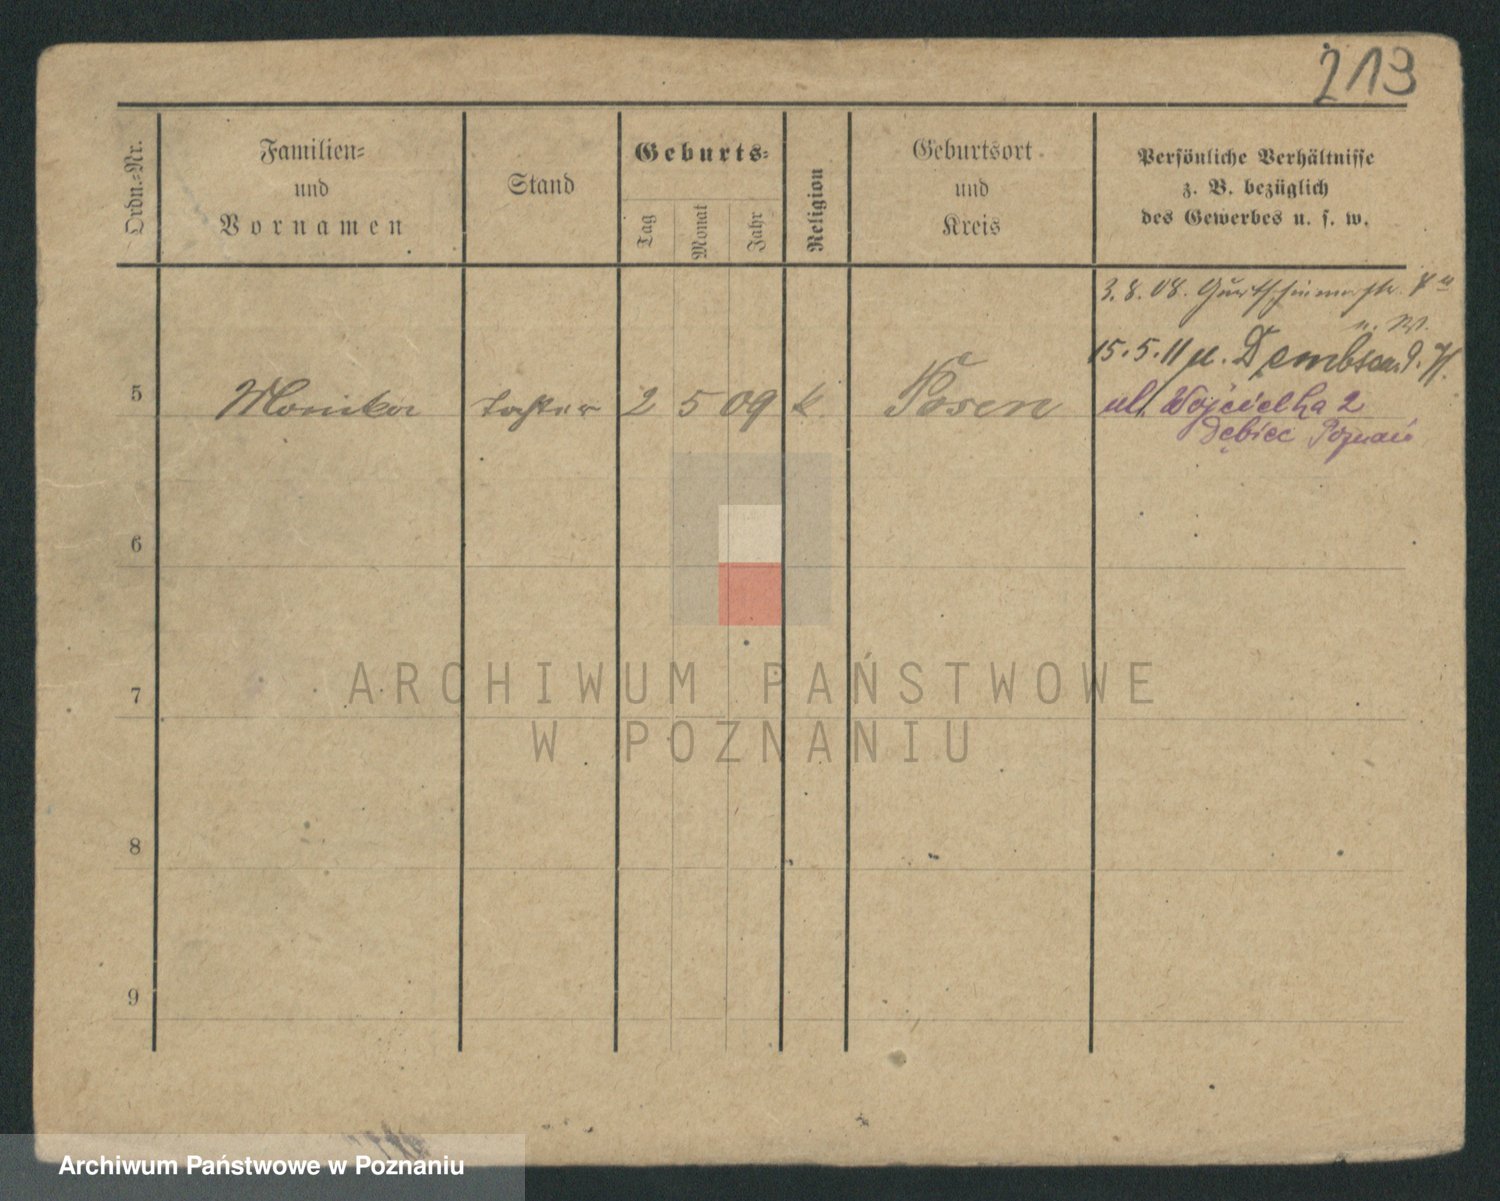 213
Ordn.-Nr.
Familien-
und
Vornamen
Stand
Geburts-
Tag
Monat
Jahr
Religion
Geburtsort
und
Kreis
Persönliche Verhältnisse
z. B. bezüglich
des Gewerbes u. s. w.
3.8.08.
15.5.11
5 Monika Tochter 2 5 09 k. Posen
ul. 2
Dębiec Poznań
6
7
8
9
ARCHIWUM PAŃSTWOWE
W POZNANIU
Archiwum Państwowe w Poznaniu